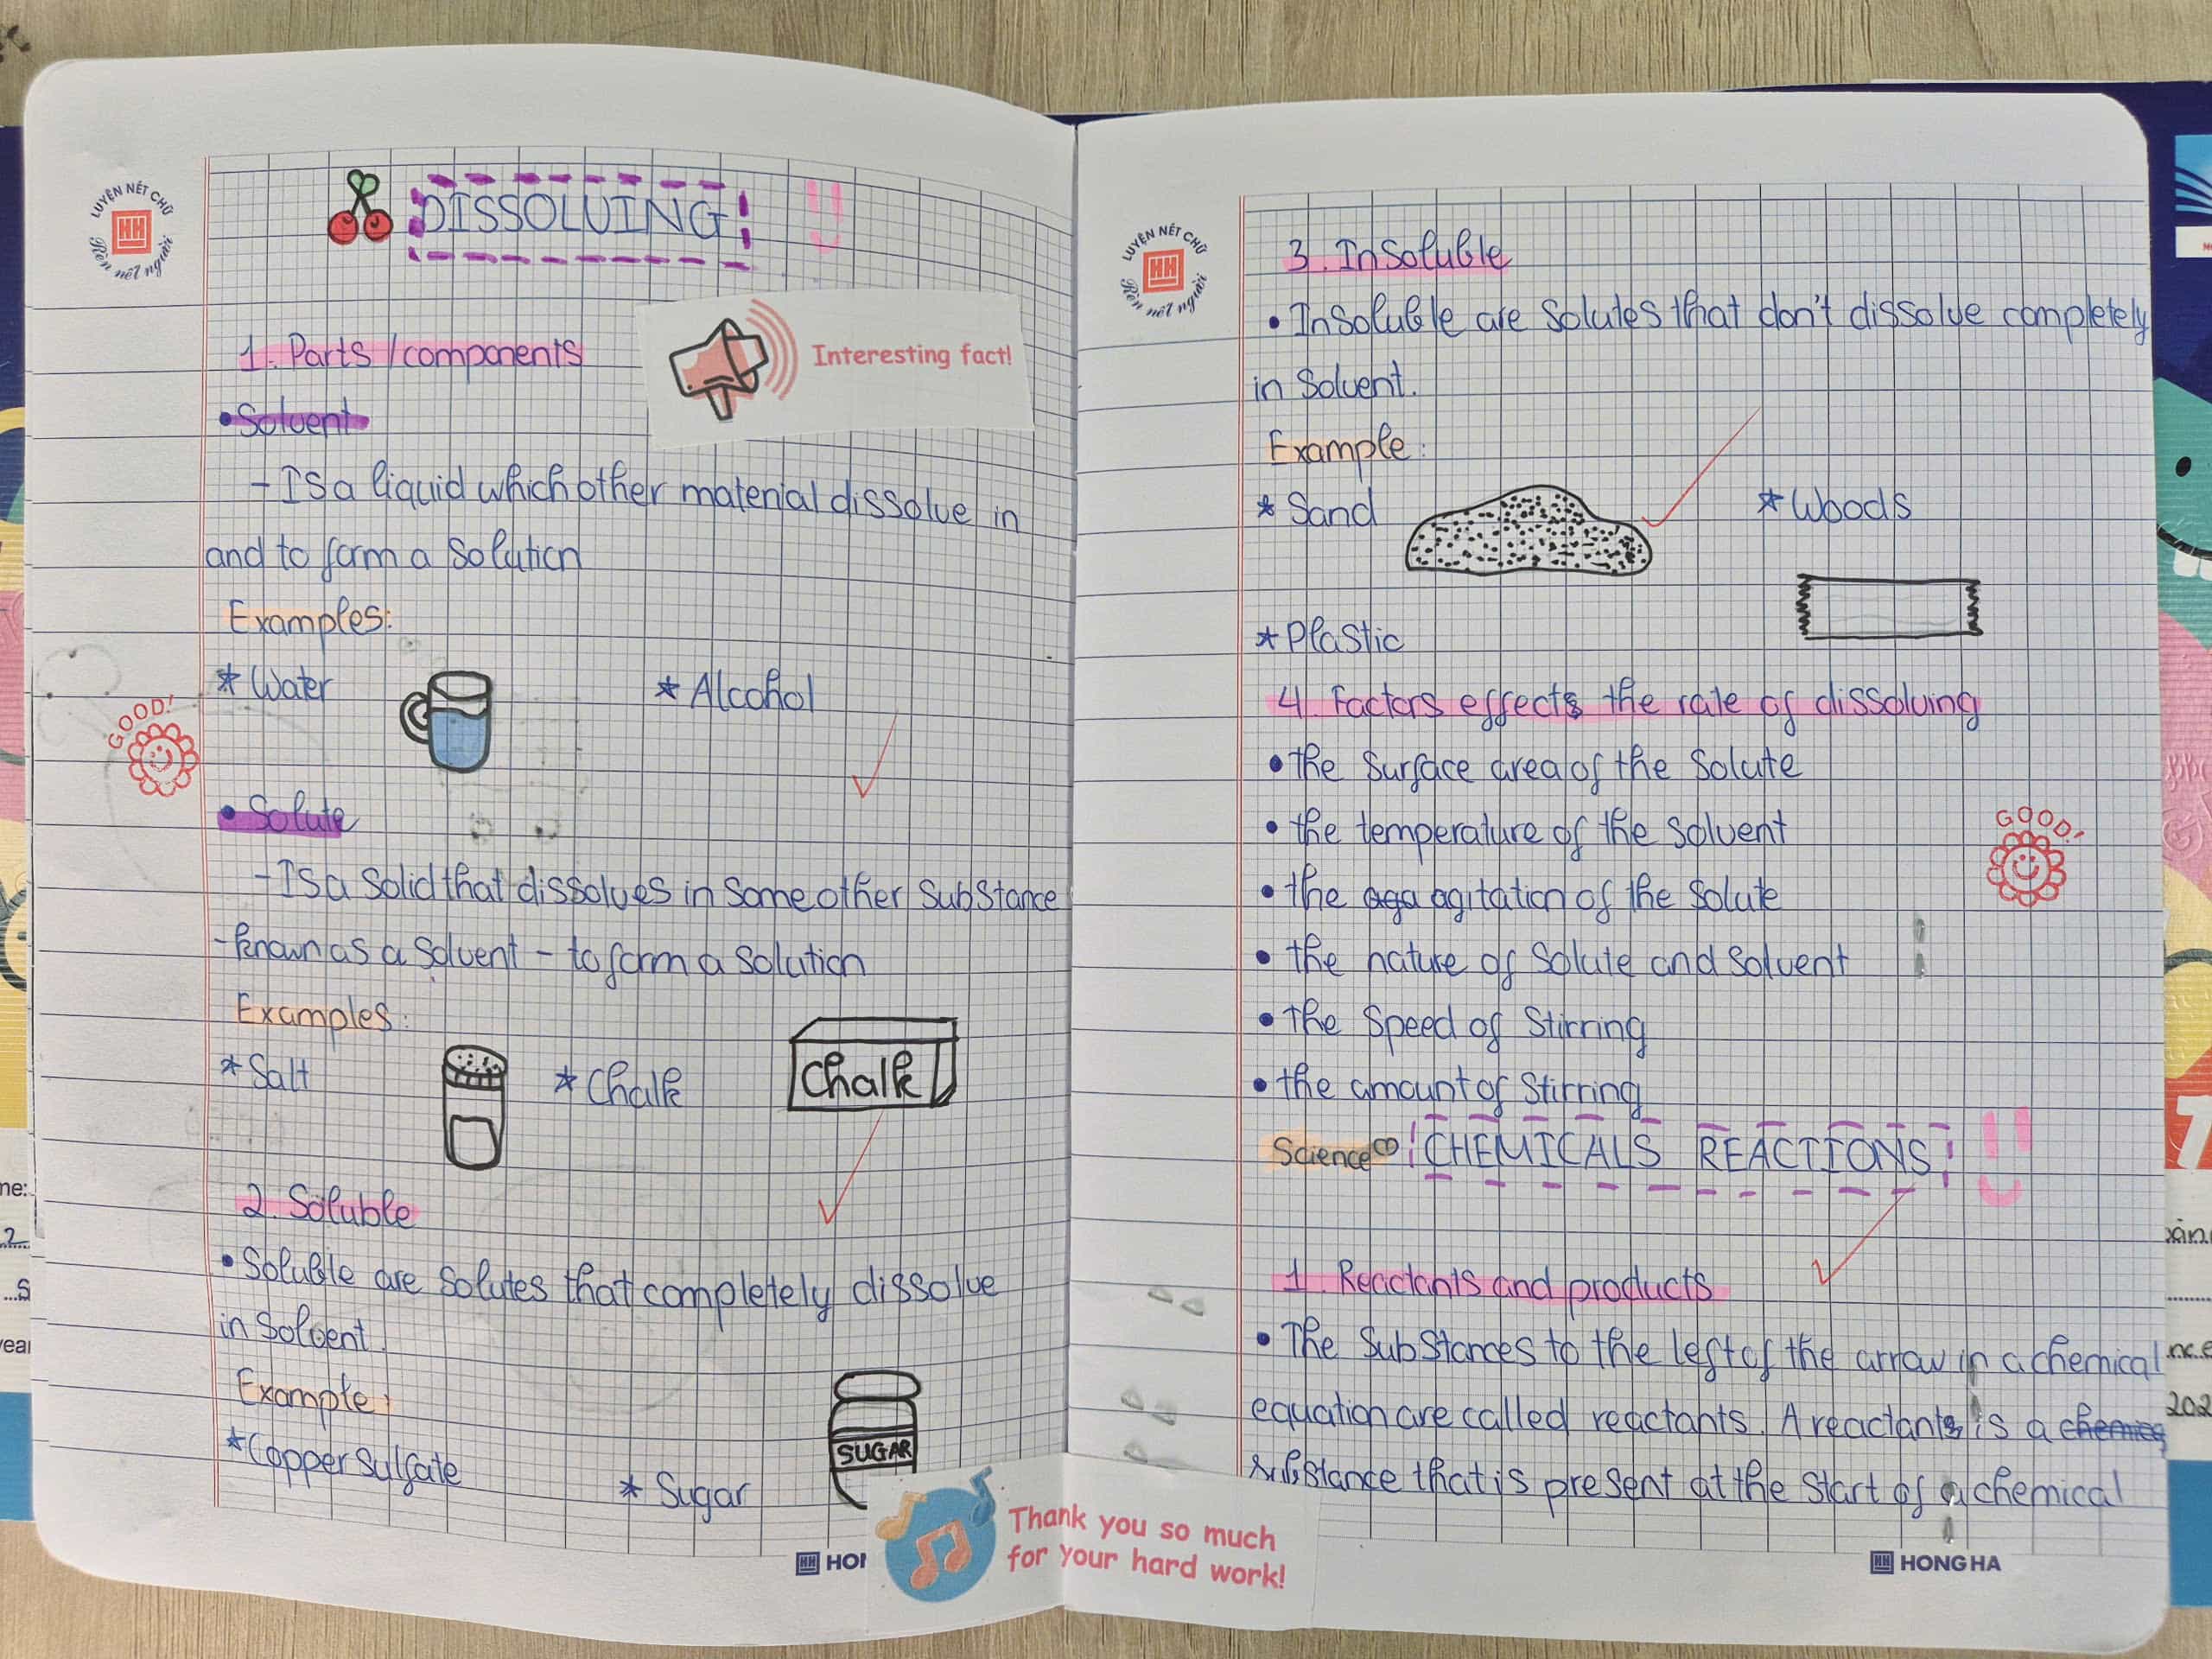 LUYỆN NÉT CHỮ
HH
Rèn nết người
DISSOLVING
1. Parts / components
Interesting fact!
• Solvent
- Is a liquid which other material dissolve in
and to form a solution
Examples:
* Water
* Alcohol
GOOD!
• Solute
- Is a solid that dissolves in some other substance
- known as a solvent - to form a solution
Examples:
* Salt
* Chalk
Chalk
2. Soluble
• Soluble are solutes that completely dissolve
in solvent.
Example:
* Copper sulfate
* Sugar
SUGAR
HH HON
Thank you so much
for your hard work!
LUYỆN NÉT CHỮ
HH
Rèn nết người
3. Insoluble
• Insoluble are solutes that don't dissolve completely
in solvent.
Example:
* Sand
* Woods
* Plastic
4. Factors effects the rate of dissolving
• the surface area of the solute
• the temperature of the solvent
• the aga agitation of the solute
GOOD!
• the nature of solute and solvent
• the speed of stirring
• the amount of stirring
Science CHEMICALS REACTIONS
1. Reactants and products
• The substances to the left of the arrow in a chemical
equation are called reactants. A reactants is a chemica
substance that is present at the start of a chemical
HH HONG HA
ne:
2
S
yea
202